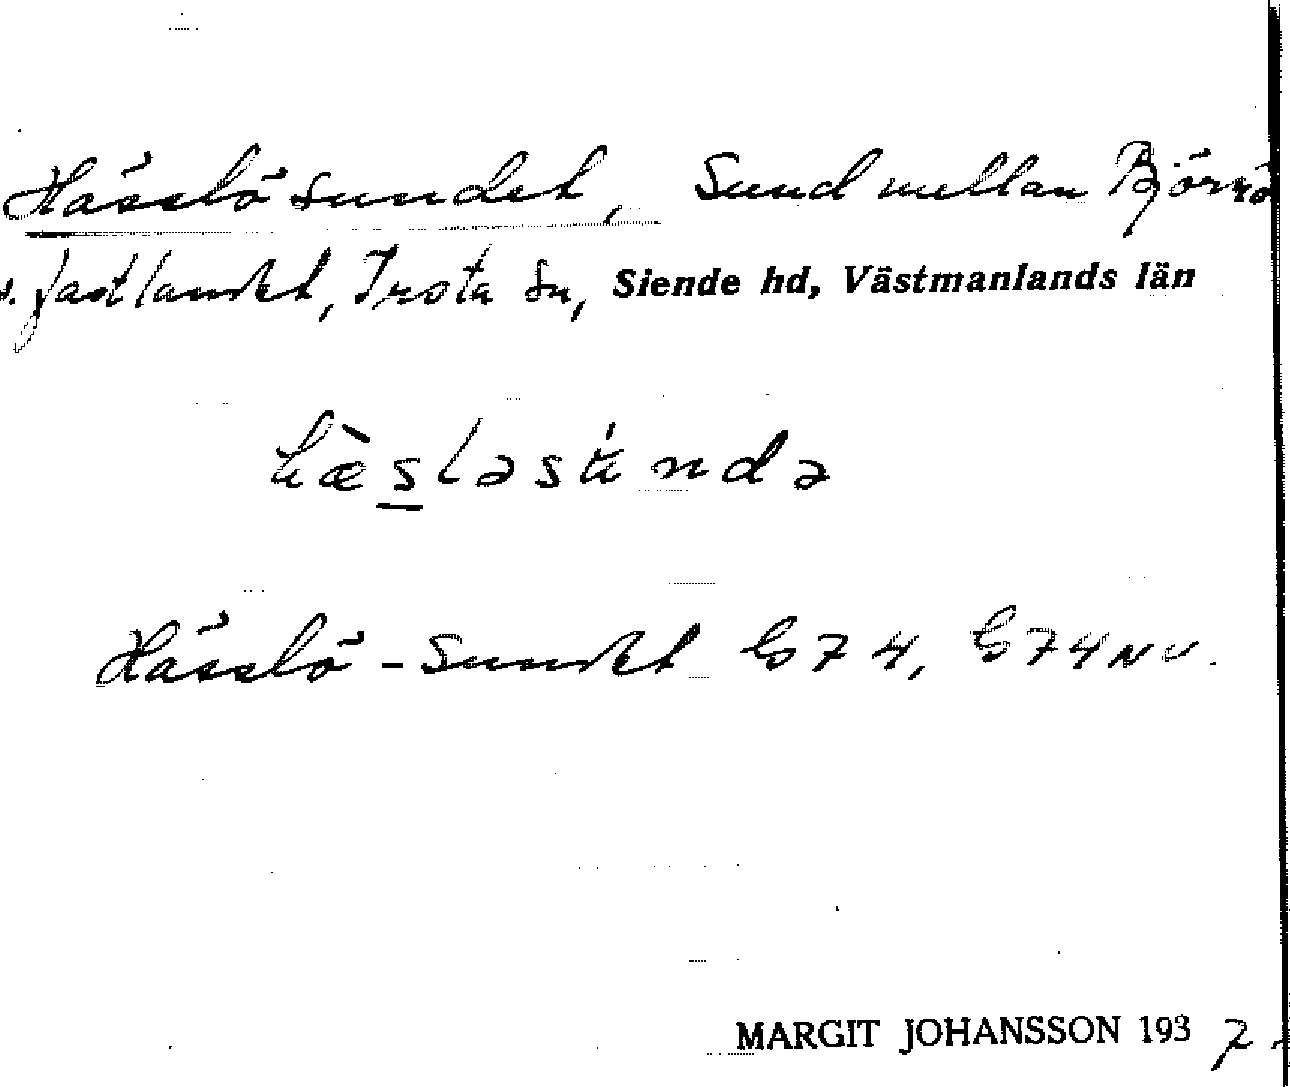 Hässlösundet, Sund mellan Björnö
o. fastlandet, Irsta sn, Siende hd, Västmanlands län
hæ̀sləsu̍ndə
Hässlö-sundet G 74, G 74 NV.
MARGIT JOHANSSON 1937.